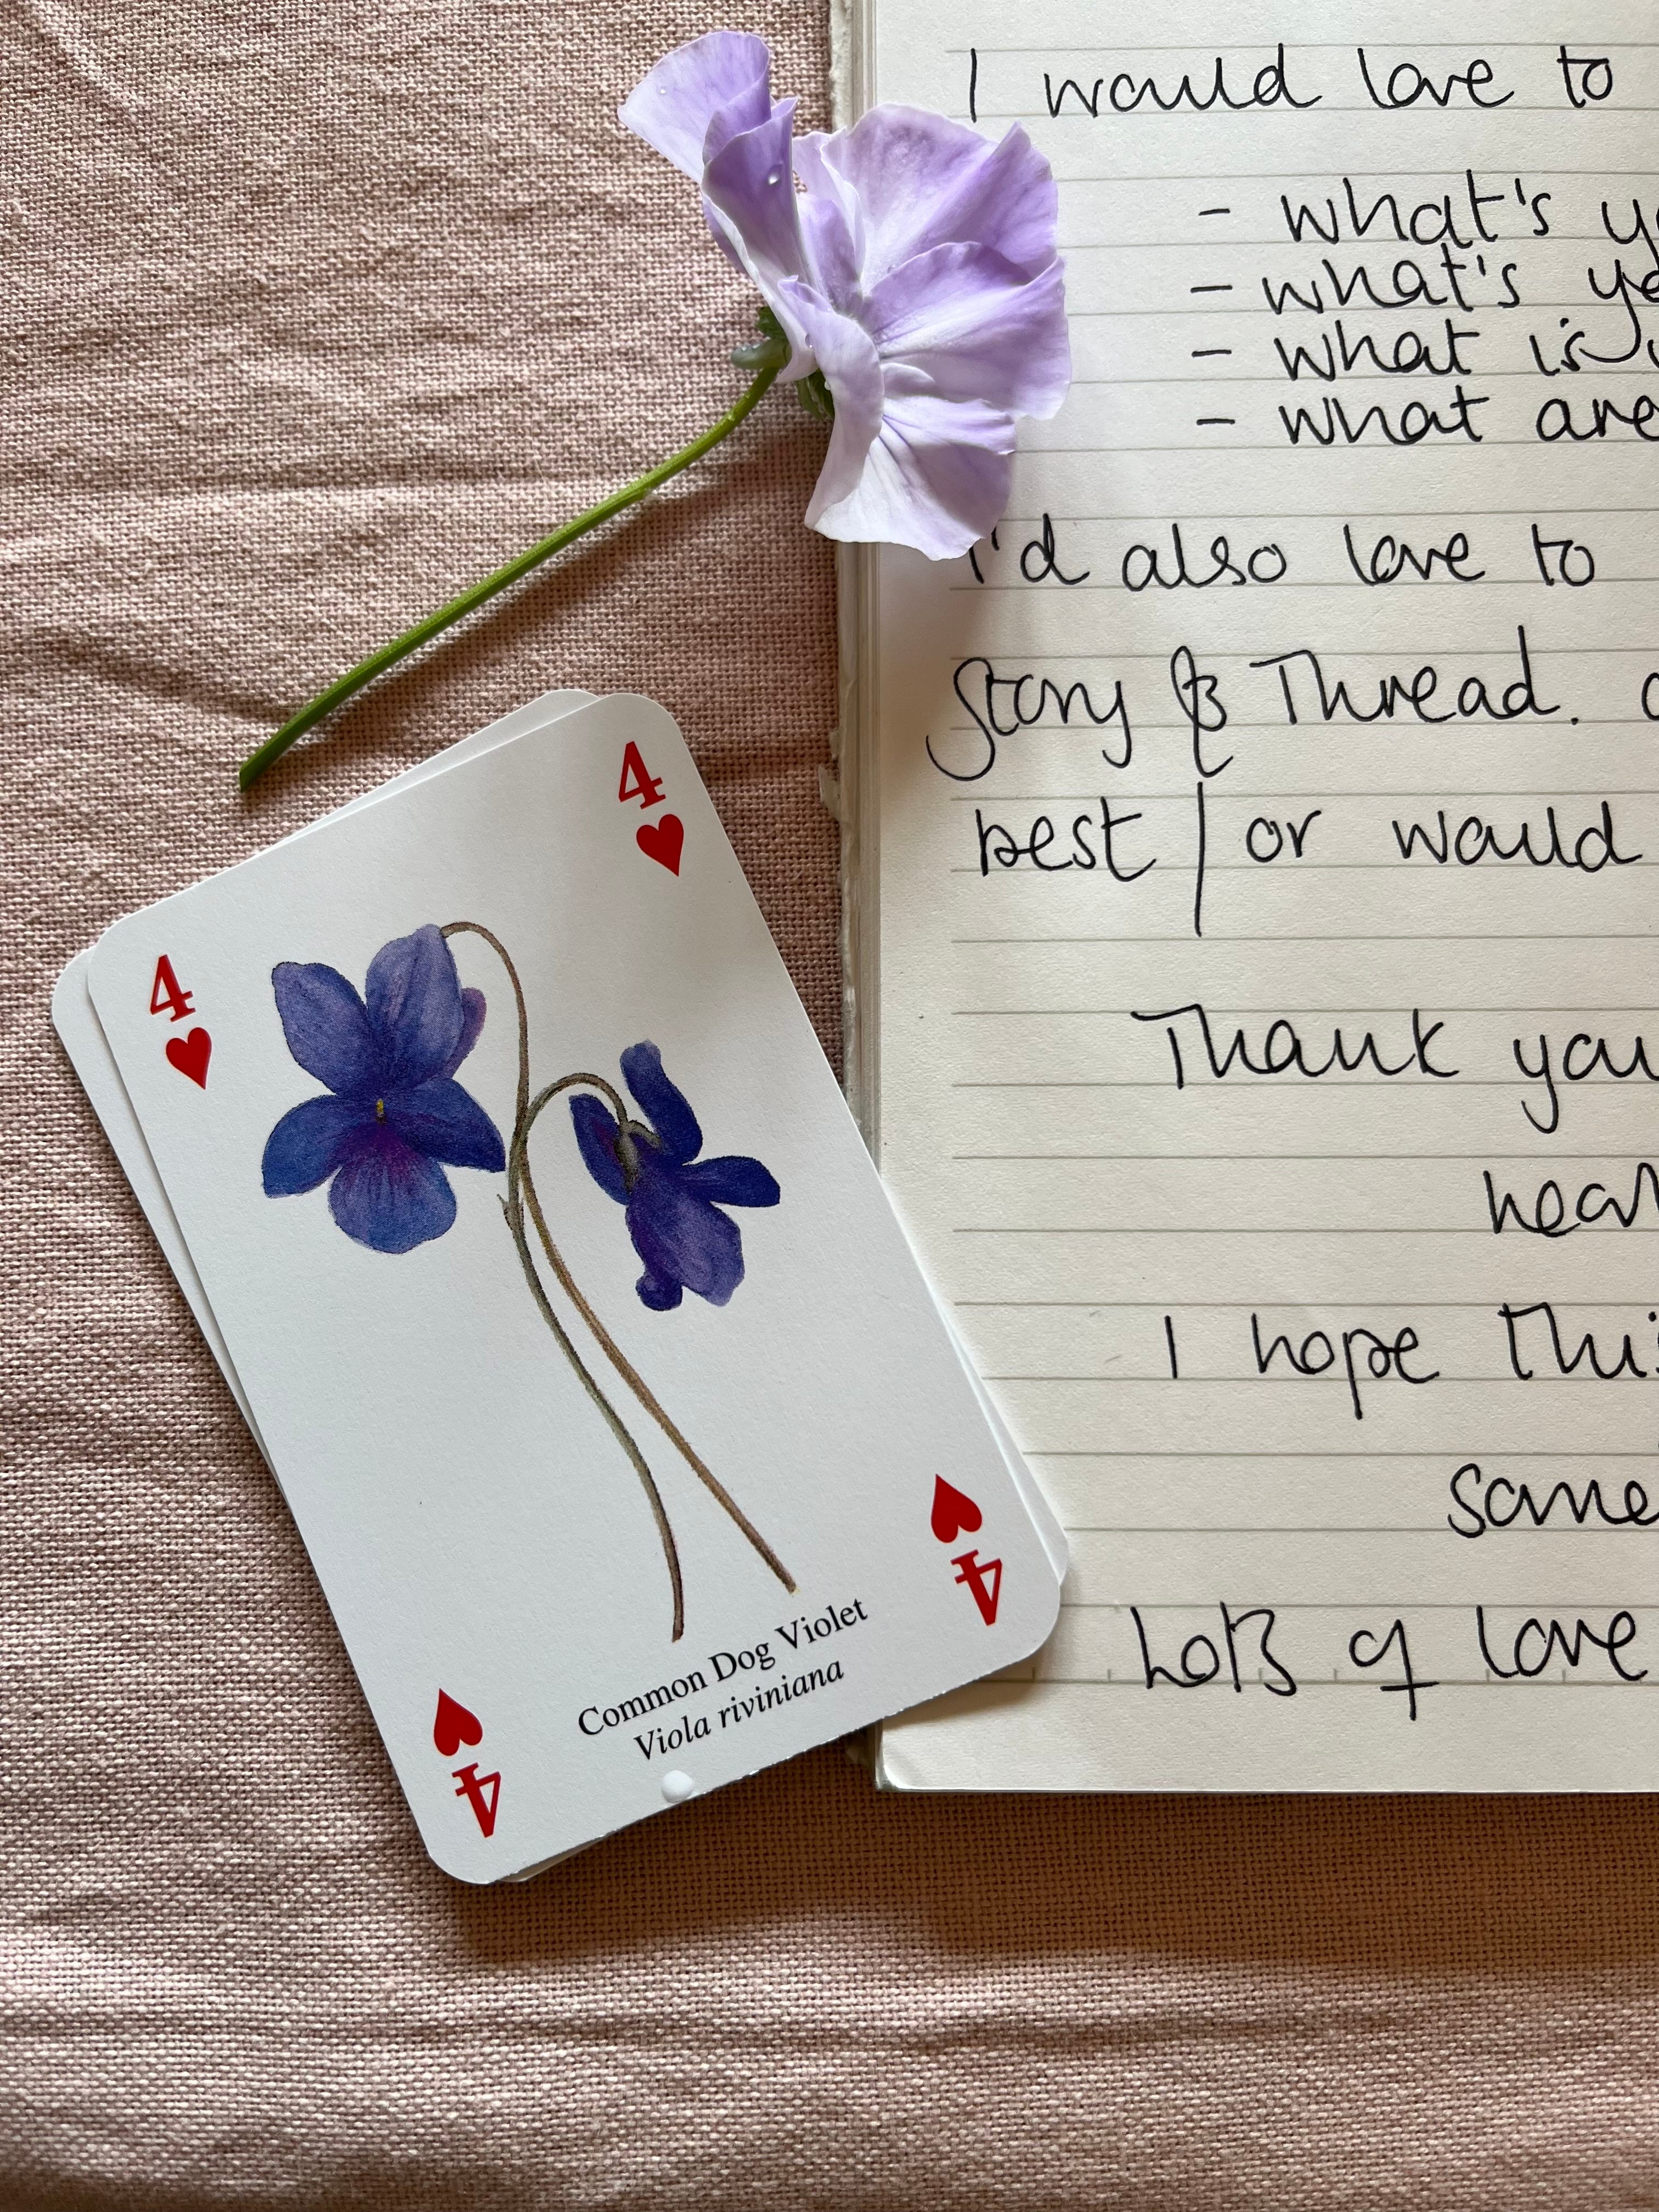 I would love to
- what's
- what's
- what is
- what are
I'd also love to
Story & Thread.
best / or would
Thank you
I hope this
Lots of love
4
4
Common Dog Violet
Viola riviniana
4
4